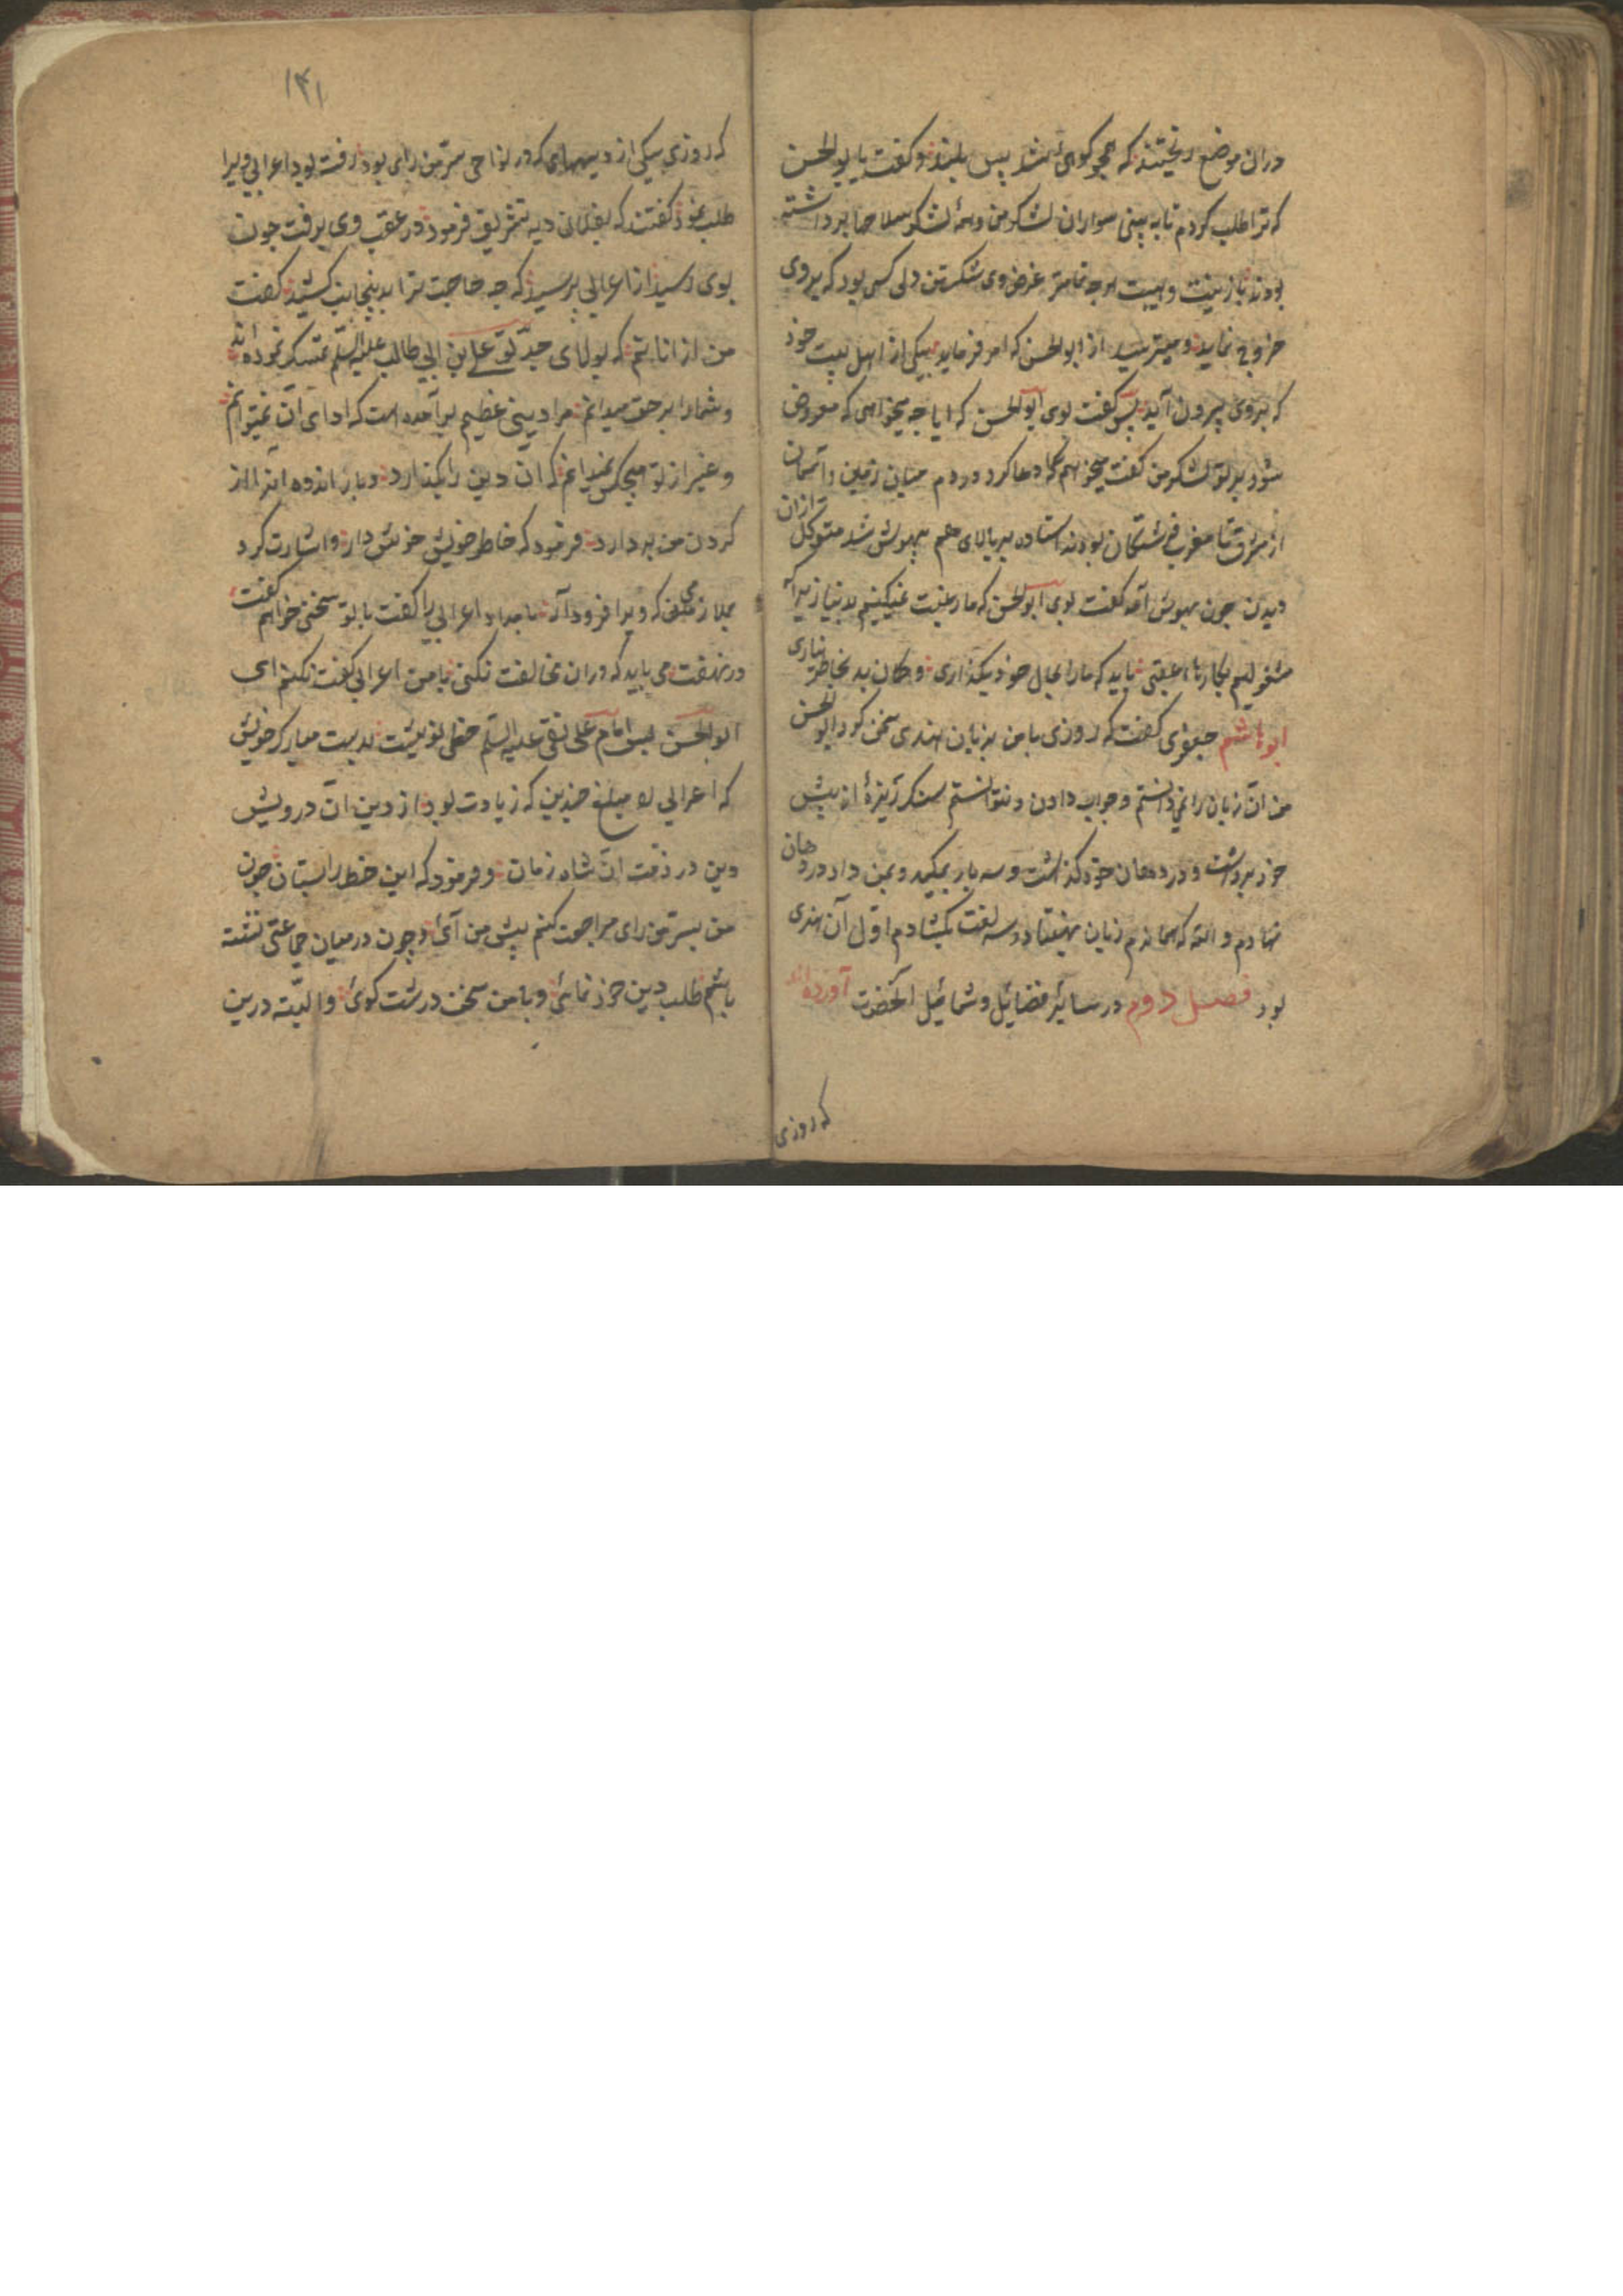 دران موضع ریختند که همچو کوهی شد پس بلند و کفت یا ابوالحسن
که ترا طلب کردم تا به بینی سواران لشکر من و همۀ لشکر سلاحها برداشته
بودند با زینت و هیبت هرچه تمامتر غرض وی شکستن دل کسی بود که بروی
خروج نماید و میترسید از ابوالحسن که امر فرماید بیکی از اهل بیت خود
که بروی بیرون آید پس کفت بوی ابوالحسن که ایا چه میخواهی که معروض
شود بر تو لشکر من کفت میخواهم دعا کرد دردم میان زمین و آسمان
از مشرق تا مغرب فرشتکان بودند استاده بر بالای هم بیهوش شد متوکل ازان
دیدن چون بهوش آمد کفت بوی ابوالحسن که ما رغبت نمیکنیم بدنیا زیراکه
مشغولیم بکارهاء عقبی باید که ما را بحال خود بکذاری و کمان بد بخاطر نیاری
ابو هاشم جعفری کفت که روزی با من بزبان هندی سخن کرد ابوالحسن
من آن زبان را نمیدانستم و جواب دادن نتوانستم سنک ریزۀ از پیش
خود برداشت و در دهان خود کذاشت و سه بار بمکید و بمن داد در دهان
نهادم والله که همانم زبان بهفتاد و سه لغت بکشادم اول آن هندی
بود فصل دوم در سائر فضائل و شمائل آنحضرت آورده اند
که روزی
۱۴۱
که روزی بیکی از دیههای که در نواحی سرّمن رای بود رفته بود اعرابی ویرا
طلب نمود کفتند که بفلانی دیه تشریف فرمود در عقب وی برفت چون
بوی رسید از اعرابی پرسید که چه حاجت ترا بدینجانب کشید کفت
من از انانم که بولای جدّ تو علی بن ابی طالب علیه السلم تمسک نموده اند
و شما را بر حق میدانم مرا دینی عظیم برآمده است که ادای آن نمیتوانم
و غیر از تو هیچکس نمیدانم که ان دین را بکذارد و بار اندوه انرا از
کردن من بردارد فرمود که خاطر خویش خوش دار و اشارت کرد
بملازمی که ویرا فرود آر بامداد اعرابی را کفت با تو سخنی خواهم کفت
در نهفت می باید که دران مخالفت نکنی با من اعرابی کفت نکنم ای
ابوالحسن پس امام علی نقی علیه السلم خطی نوشت بدست مبارک خویش
که اعرابی را مبلغ چندین که زیادت بود از دین آن درویش
دین در ذمت آن شاه زمان و فرمود که این خط را بستان چون
من بسرّمن رای مراجعت کنم پیش من آئی و چون در میان جماعتی نشسته
باشم طلب دین خود نمائی و با من سخن درشت کوئی و البتّه درین